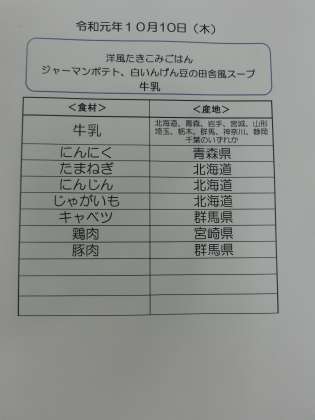 令和元年１０月１０日（木）
洋風たきこみごはん
ジャーマンポテト、白いんげん豆の田舎風スープ
牛乳
＜食材＞ ＜産地＞
牛乳 北海道、青森、岩手、宮城、山形
埼玉、栃木、群馬、神奈川、静岡
千葉のいずれか
にんにく 青森県
たまねぎ 北海道
にんじん 北海道
じゃがいも 北海道
キャベツ 群馬県
鶏肉 宮崎県
豚肉 群馬県